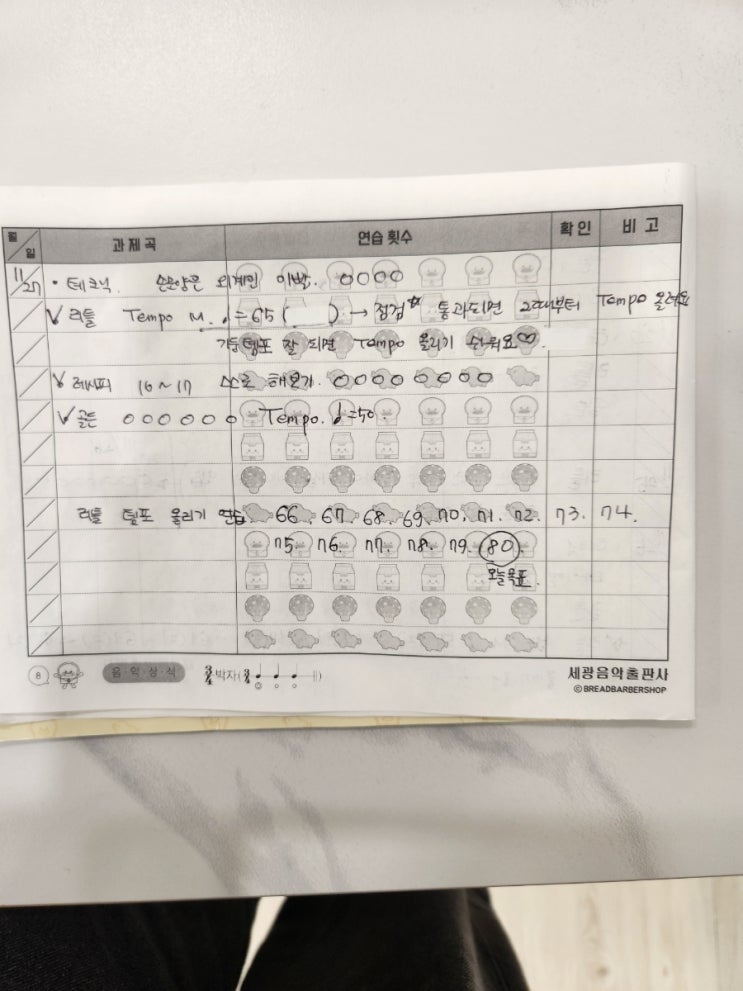 월 일 과제곡 연습횟수 확인 비고
11/27 • 테크닉. 손모양은 외계인 이빨. ○○○○
✓ 리듬 Tempo M. ♩=65 ( ) → 점검☆ 통과되면 그때부터 Tempo 올려요
템포 잘 되면 Tempo 올리기 쉬워요♡.
✓ 레시피 16~17 스스로 해보기. ○○○○○○○○
✓ 골든 ○○○○○○ Tempo. ♩=50.
리듬 템포 올리기 연습. 66. 67. 68. 69. 70. 71. 72. 73. 74.
75. 76. 77. 78. 79. 80.
오늘목표.
8 음·악·상·식 3/4박자(3/4 ♩ ♩ ♩ ‖) 세광음악출판사
©BREADBARBERSHOP